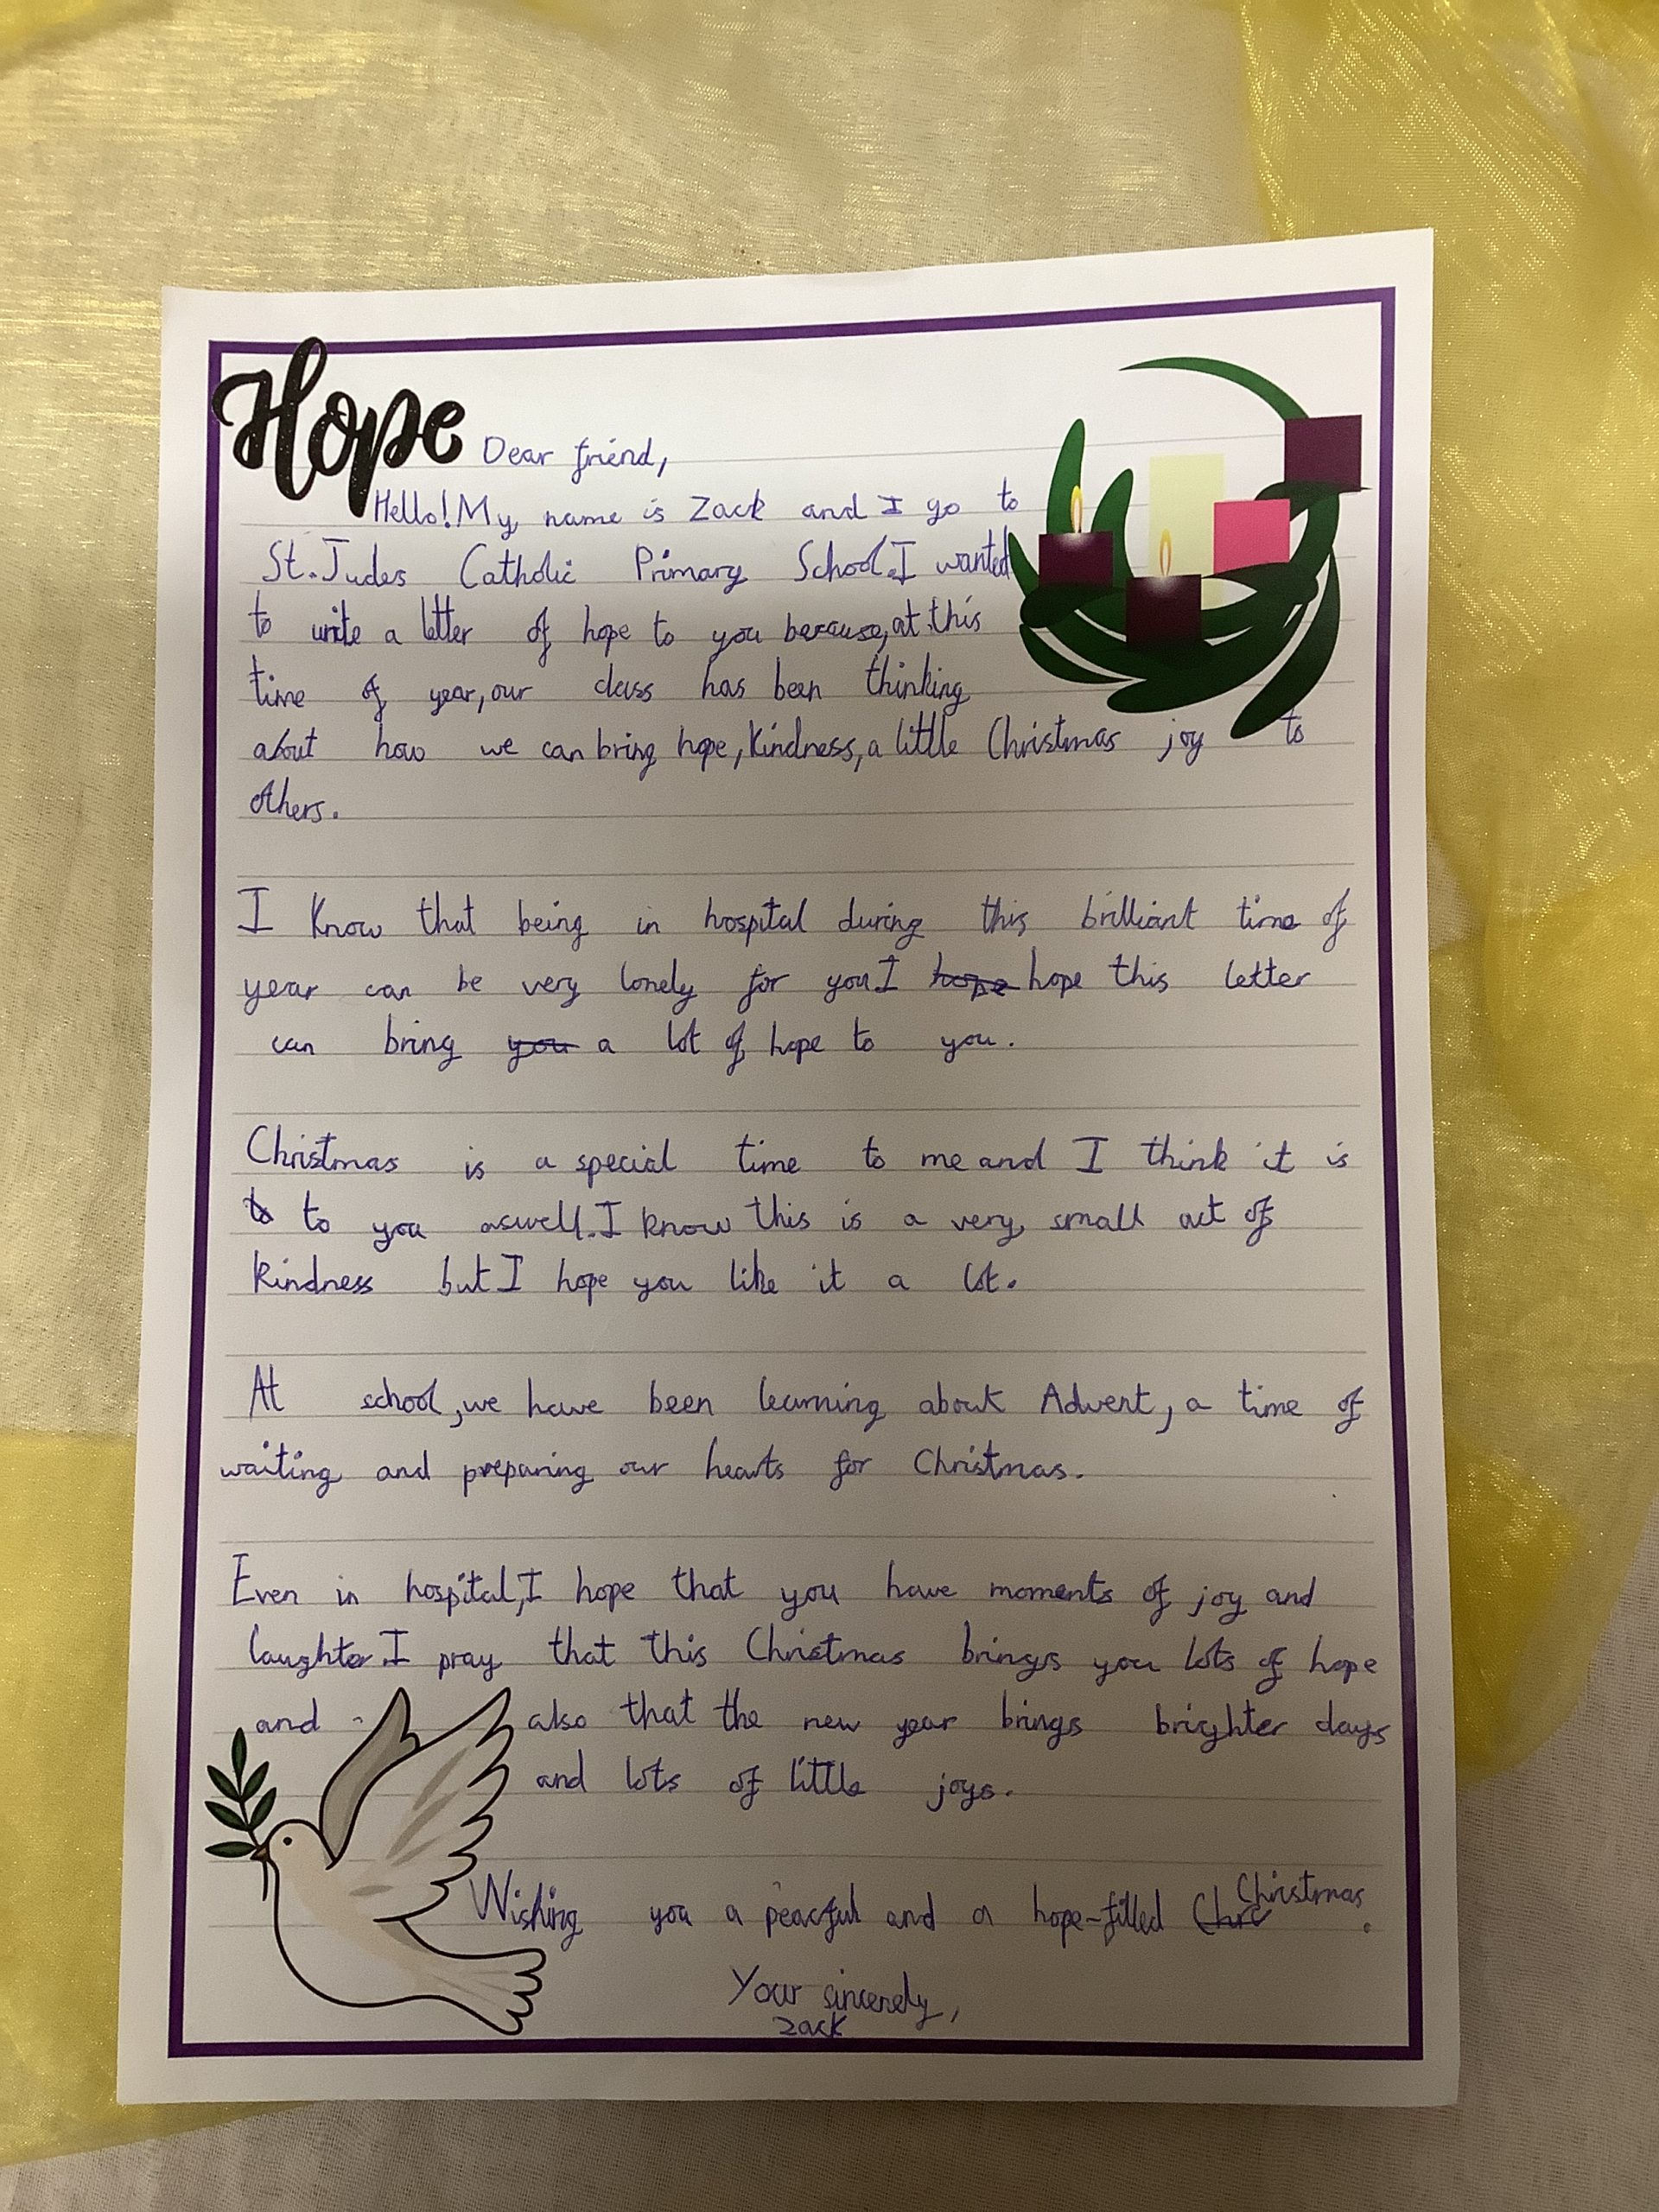 Hope
Dear friend,
Hello! My name is Zack and I go to
St. Judes Catholic Primary School. I wanted
to write a letter of hope to you because, at this
time of year, our class has been thinking
about how we can bring hope, kindness, a little Christmas joy to
others.
I know that being in hospital during this brilliant time of
year can be very lonely for you. I hope hope this letter
can bring you a lot of hope to you.
Christmas is a special time to me and I think it is
to to you aswell. I know this is a very small act of
kindness but I hope you like it a lot.
At school, we have been learning about Advent, a time of
waiting and preparing our hearts for Christmas.
Even in hospital, I hope that you have moments of joy and
laughter. I pray that this Christmas brings you lots of hope
and also that the new year brings brighter days
and lots of little joys.
Wishing you a peacful and a hope-filled Chrc Christmas.
Your sincerely,
Zack